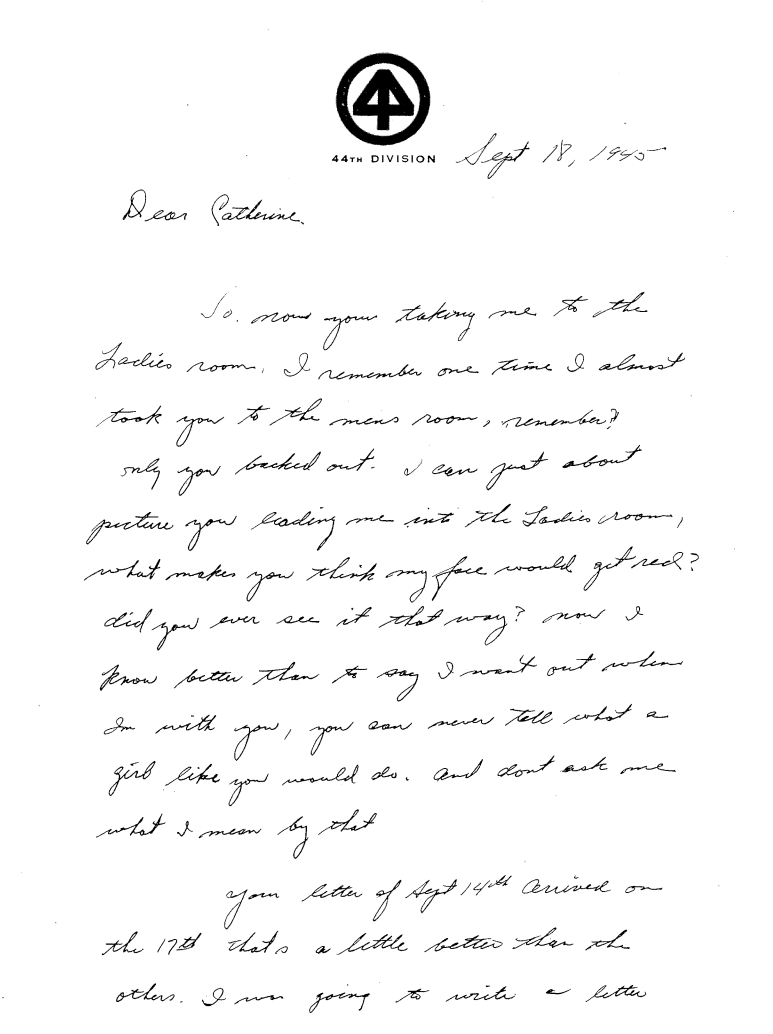 44TH DIVISION
Sept 18, 1945
Dear Catherine.
So. now your taking me to the
Ladies room. I remember one time I almost
took you to the mens room, remember?
only you backed out. I can just about
picture you leading me into the Ladies room,
what makes you think my face would get red?
did you ever see it that way? now I
know better than to say I want out when
Im with you, you can never tell what a
girl like you would do. and dont ask me
what I mean by that
your letter of Sept 14th arrived on
the 17th thats a little better than the
others. I was going to write a letter